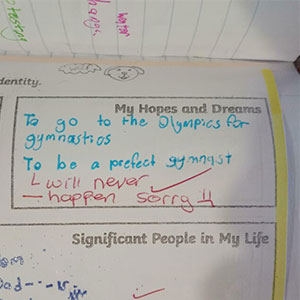 water
dentity.
My Hopes and Dreams
To go to the Olympics for
gymnastios
To be a prefect gymnast
will never
happen sorry
Significant People in My Life